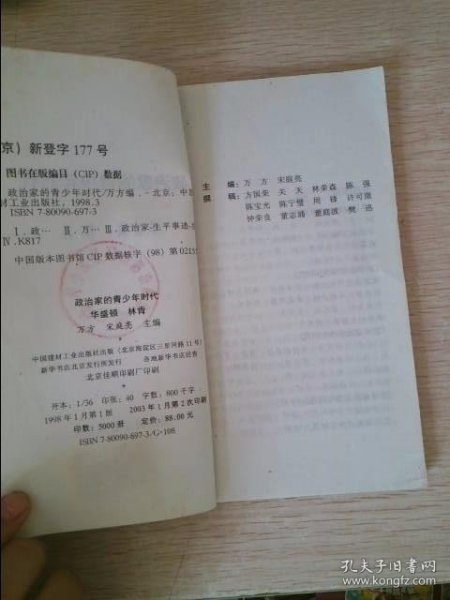 京）新登字 177 号
图书在版编目（CIP）数据
政治家的青少年时代/万方编．-北京：中
材工业出版社，1998.3
ISBN 7-80090-697-3
Ⅰ．政… Ⅱ．万… Ⅲ．政治家-生平事迹-
Ⅳ．K817
中国版本图书馆 CIP 数据核字（98）第 0215
政治家的青少年时代
华盛顿 林肯
万方 宋庭亮 主编
中国建材工业出版社出版（北京海淀区三里河路 11 号）
新华书店北京发行所发行 各地新华书店经售
北京佳顺印刷厂印刷
开本：1/36 印张：40 字数：800 千字
1998 年 1 月第 1 版 2003 年 1 月第 2 次印刷
印数：5000 册 定价：88.00 元
ISBN 7-80090-697-3/G·108
主 编：万 方 宋庭亮
撰 稿：方国荣 天 天 林荣森 陈 强
陈宝光 陈宁璧 周 锋 许可微
钟荣良 董志涌 董庭波 樊 迅
孔夫子旧书网
www.kongfz.com